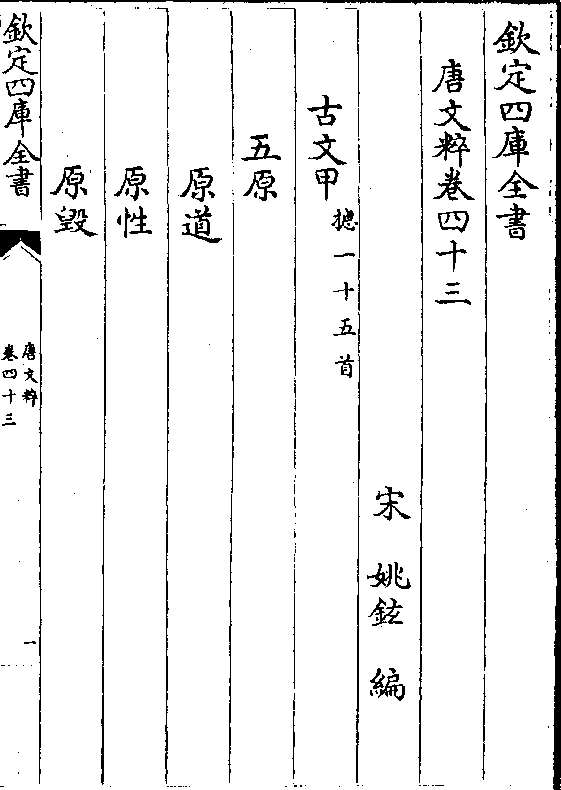 欽定四庫全書
唐文粹卷四十三
宋 姚鉉 編
古文甲 摠一十五首
五原
原道
原性
原毀
欽定四庫全書
唐文粹
卷四十三
一